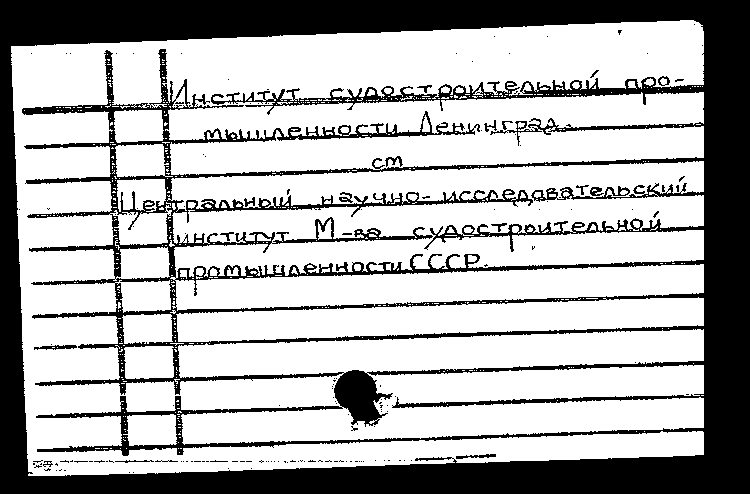 Институт судостроительной про-
мышленности Ленинград.
см
Центральный научно-исследовательский
институт М-ва судостроительной
промышленности СССР.